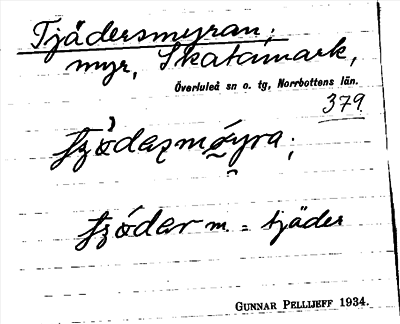 Tjädersmyran,
myr, Skatamark,
Överluleå sn o. tg, Norrbottens län.
379
m. = tjäder
GUNNAR PELLIJEFF 1934.